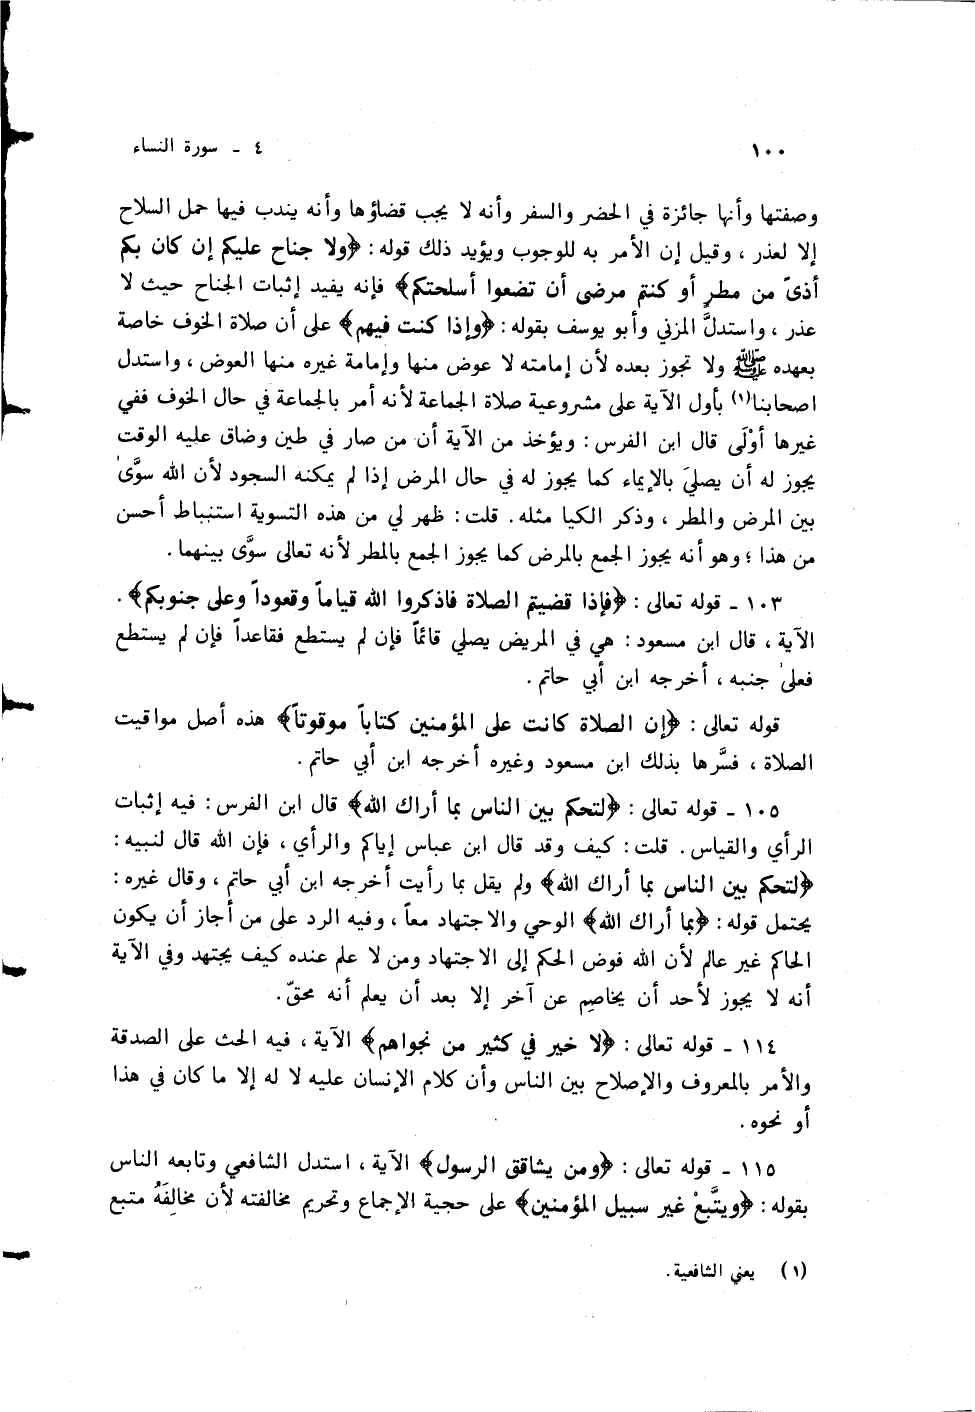 ١٠٠
٤ - سورة النساء
وصفتها وأنها جائزة في الحضر والسفر وأنه لا يجب قضاؤها وأنه يندب فيها حمل السلاح
إلا لعذر ، وقيل إن الأمر به للوجوب ويؤيد ذلك قوله : ﴿ولا جناح عليكم إن كان بكم
أذىً من مطرٍ أو كنتم مرضى أن تضعوا أسلحتكم﴾ فإنه يفيد إثبات الجناح حيث لا
عذر ، واستدلَّ المزني وأبو يوسف بقوله : ﴿وإذا كنت فيهم﴾ على أن صلاة الخوف خاصة
بعهده ﷺ ولا تجوز بعده لأن إمامته لا عوض منها وإمامة غيره منها العوض ، واستدل
اصحابنا(١) بأول الآية على مشروعية صلاة الجماعة لأنه أمر بالجماعة في حال الخوف ففي
غيرها أوْلَى قال ابن الفرس : ويؤخذ من الآية أن من صار في طين وضاق عليه الوقت
يجوز له أن يصليَ بالإيماء كما يجوز له في حال المرض إذا لم يمكنه السجود لأن الله سوَّىٰ
بين المرض والمطر ، وذكر الكيا مثله . قلت : ظهر لي من هذه التسوية استنباط أحسن
من هذا ؛ وهو أنه يجوز الجمع بالمرض كما يجوز الجمع بالمطر لأنه تعالى سوَّى بينهما .
١٠٣ - قوله تعالى : ﴿فإذا قضيتم الصلاة فاذكروا الله قياماً وقعوداً وعلى جنوبكم﴾ .
الآية ، قال ابن مسعود : هي في المريض يصلي قائماً فإن لم يستطع فقاعداً فإن لم يستطع
فعلىٰ جنبه ، أخرجه ابن أبي حاتم .
قوله تعالى : ﴿إن الصلاة كانت على المؤمنين كتاباً موقوتاً﴾ هذه أصل مواقيت
الصلاة ، فسَّرها بذلك ابن مسعود وغيره أخرجه ابن أبي حاتم .
١٠٥ - قوله تعالى : ﴿لتحكم بين الناس بما أراك الله﴾ قال ابن الفرس : فيه إثبات
الرأي والقياس . قلت : كيف وقد قال ابن عباس إياكم والرأي ، فإن الله قال لنبيه :
﴿لتحكم بين الناس بما أراك الله﴾ ولم يقل بما رأيت أخرجه ابن أبي حاتم ، وقال غيره :
يحتمل قوله : ﴿بما أراك الله﴾ الوحي والاجتهاد معاً ، وفيه الرد على من أجاز أن يكون
الحاكم غير عالم لأن الله فوض الحكم إلى الاجتهاد ومن لا علم عنده كيف يجتهد وفي الآية
أنه لا يجوز لأحد أن يخاصِم عن آخر إلا بعد أن يعلم أنه محقّ .
١١٤ - قوله تعالى : ﴿لا خير في كثير من نجواهم﴾ الآية ، فيه الحث على الصدقة
والأمر بالمعروف والإصلاح بين الناس وأن كلام الإنسان عليه لا له إلا ما كان في هذا
أو نحوه .
١١٥ - قوله تعالى : ﴿ومن يشاقق الرسول﴾ الآية ، استدل الشافعي وتابعه الناس
بقوله : ﴿ويتَّبعْ غير سبيل المؤمنين﴾ على حجية الإجماع وتحريم مخالفته لأن مخالِفَهُ متبع
(١) يعني الشافعية .